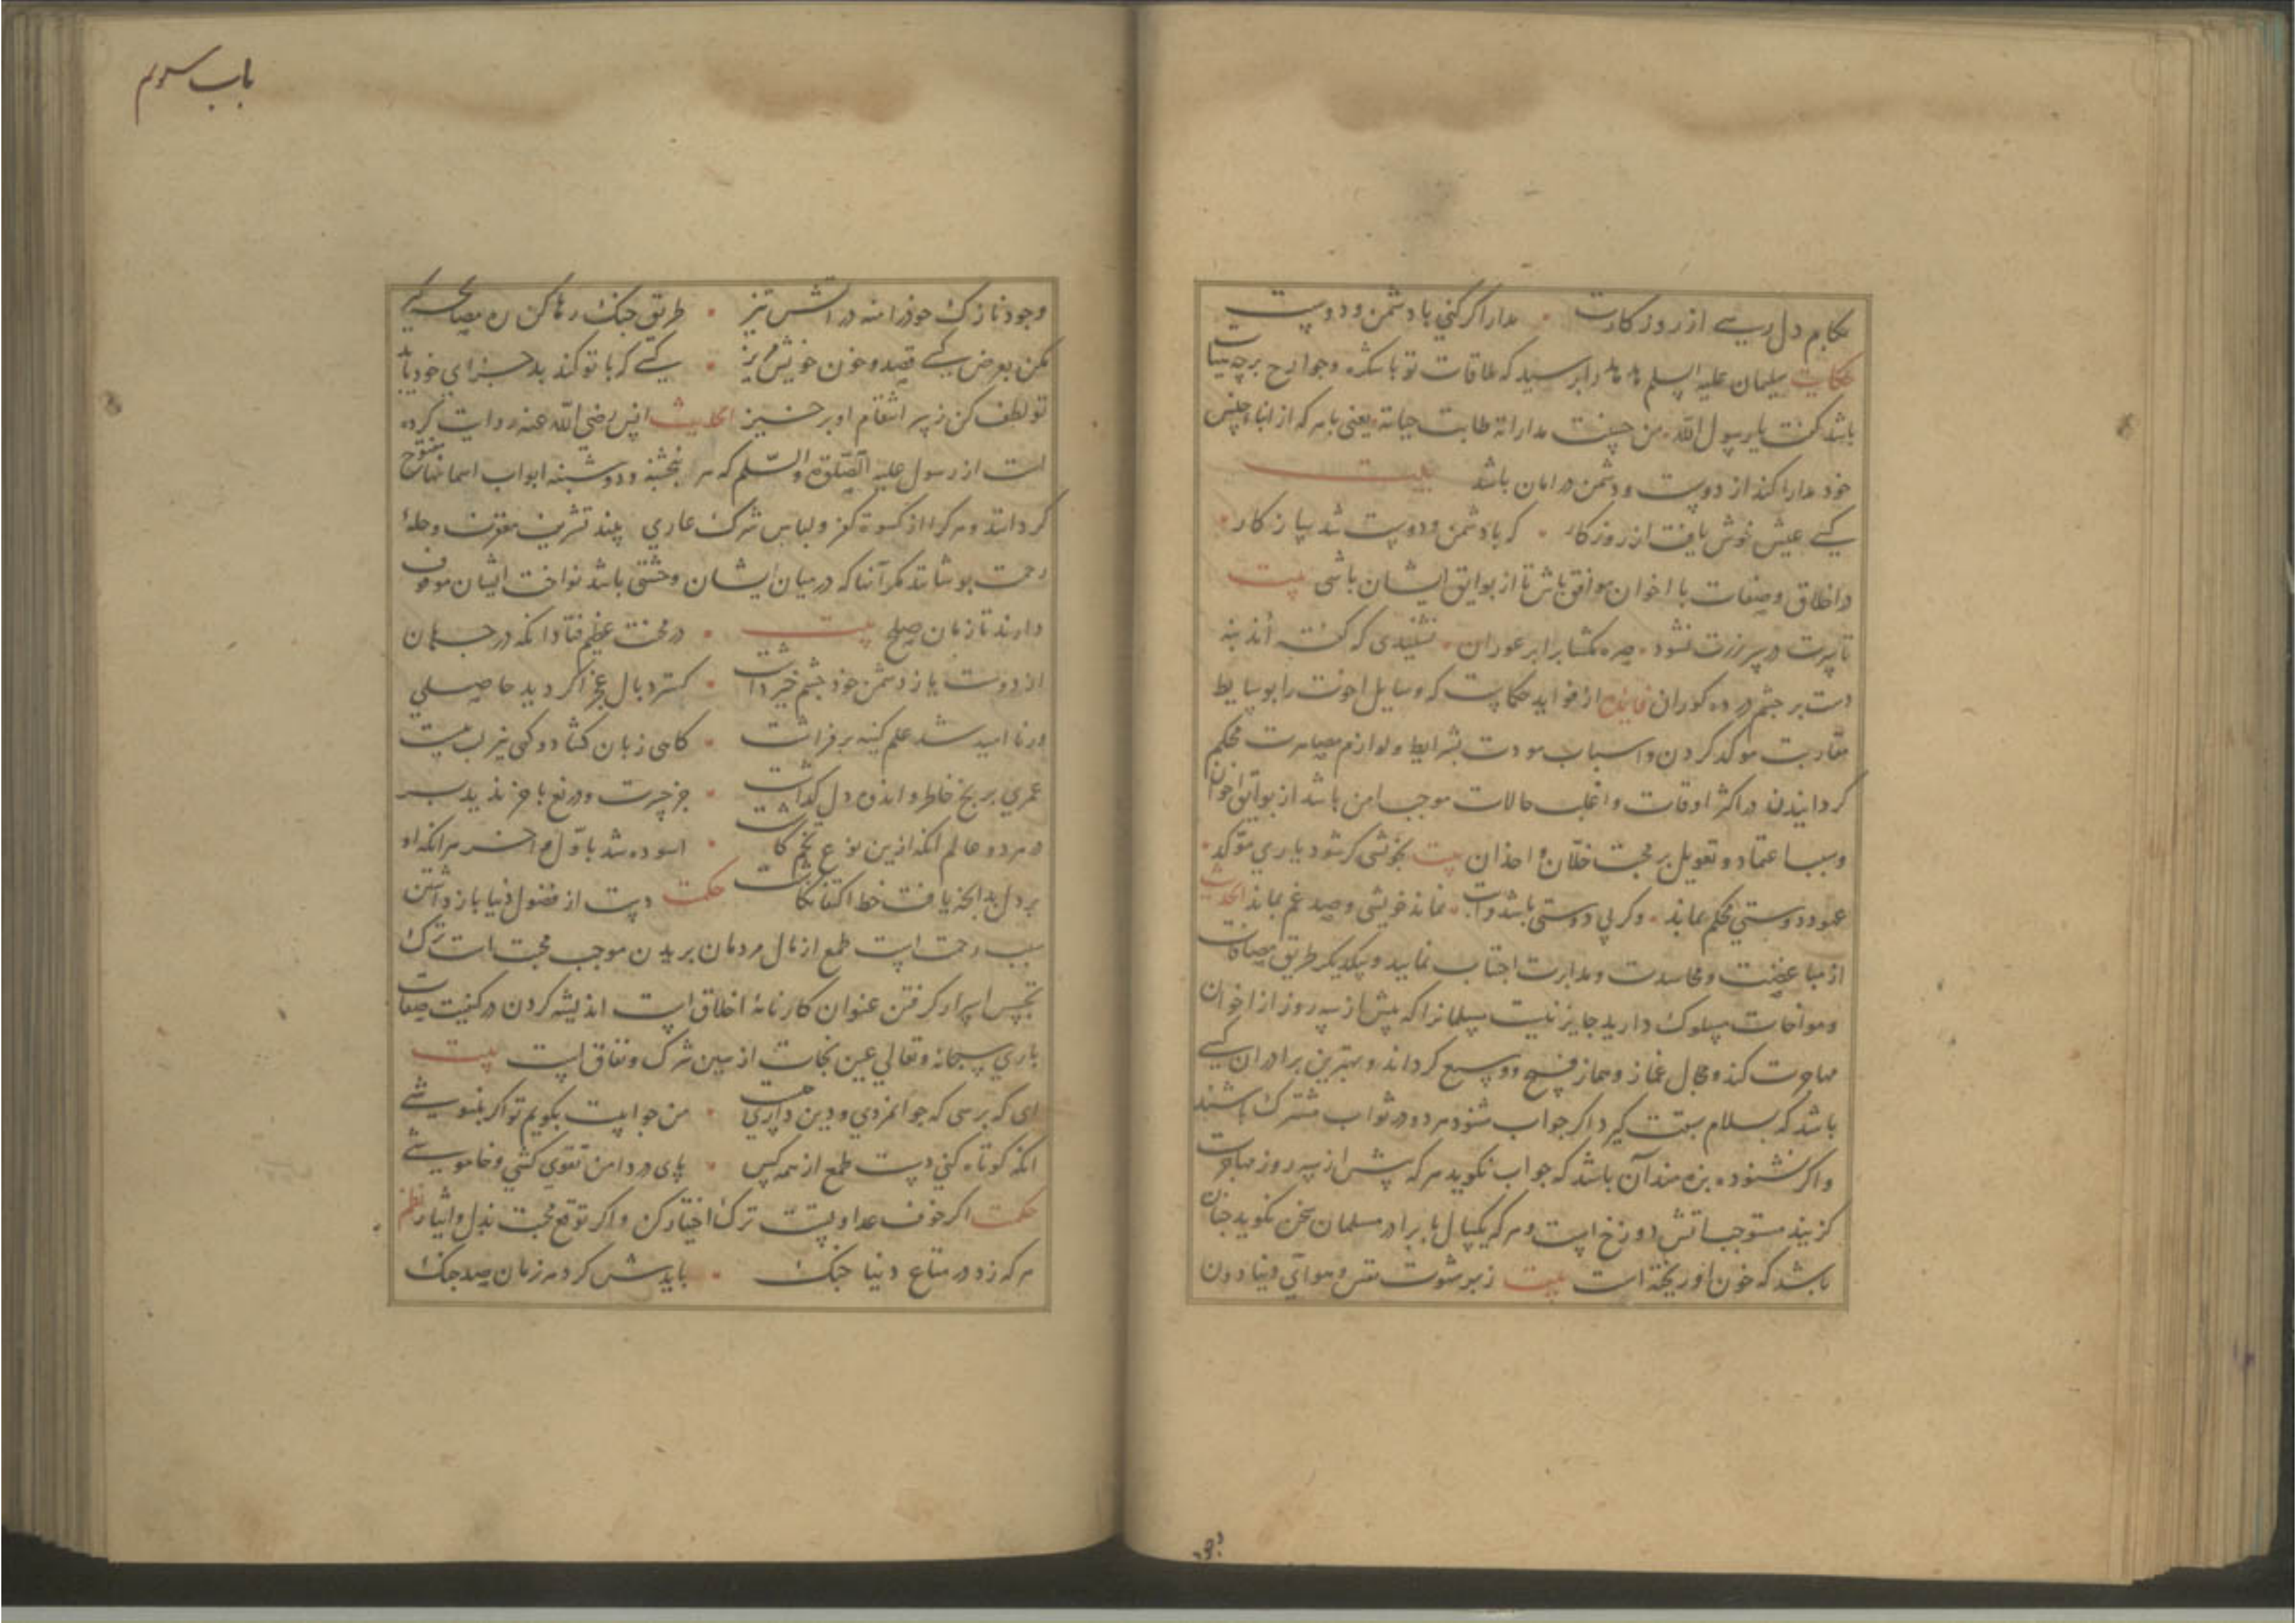 بکام دل رسی از روزکارت • مدارا کر کنی با دشمن و دوست
حکایت سلیمان علیه السلم هدهد را پرسید که ملاقات تو با شکره و جوارح بر چه
باشد کفت یا رسول الله من حسنت مداراته طابت حیاته یعنی با هر که از ابناء جنس
خود مدارا کند از دوست و دشمن در امان باشد بیت
کسی عیش خوش یافت از روزکار • که با دشمن و دوست شد سازکار
در اخلاق و صفات با اخوان موافق باش تا از بوایق ایشان باشی بیت
نشنیدی که کفته اند
دست بر چشم در ده کوران فایده از فواید حکایت که وسایل اخوت را بوسایط
مقاربت موکد کردن و اسباب مودت بشرایط و لوازم مصاهرت محکم
کردانیدن در اکثر اوقات و اغلب حالات موجب امن باشد از بوایق اخوان
و سبب اعتماد و تعویل بر محبت خلان و اخدان بیت بخویشی کر شود یاری موکد
عمود دوستی محکم بماند • وکر بی دوستی باشد قرابت • نماند خویشی و صد غم بماند الحدیث
از مباغضت و محاسدت و مدابرت اجتناب نمایید و بیکدیکر طریق مصافات
و مواخات مسلوک دارید جایز نیست مسلمانرا که بیش از سه روز از اخوان
مهاجرت کند و مجال غماز و هماز فسیح و وسیع کرداند و بهترین برادران کسی
باشد که بسلام سبقت کیرد اکر جواب شنود هر دو در ثواب مشترک باشند
و اکر نشنود بزه مند آن باشد که جواب نکوید هر که بیش از سه روز مهاجرت
کزیند مستوجب اتش دوزخ است و هر که یکسال با برادر مسلمان سخن نکوید چنان
باشد که خون او ریخته است بیت ز بهر شهوت نفس و هوای دنیا دون
باب سوم
وجود نازک خود را منه در اتش تیز • طریق جنک رها کن ره مصالح کیر
مکن بعرض کسی قصد و خون خویش مریز • کسی که با تو کند بد جزای خود یابد
تو لطف کن ز سر انتقام او برخیز الحدیث انس رضی الله عنه روایت کرده
است از رسول علیه الصلوة و السلم که هر پنجشنبه و دوشنبه ابواب اسمانها مفتوح
کردانند و هر کرا از کسوة کفر و لباس شرک عاری بینند تشریف مغفرت و حلهٔ
رحمت پوشانند مکر آنانکه در میان ایشان وحشتی باشد نواخت ایشان موقوف
دارند تا زمان صلح بیت • در محنت عظیم فتاد انکه در جهان
از دوست باز دشمن خود چشم خیر داشت • کسترد بال عجز اکر دید حاصلی
ور نا امید شد علم کینه برفراشت • کاهی زبان کشاد و کهی نیز لب ببست
عمری برنج خاطر و اندوه دل کذاشت • جز حسرت و دریغ باخر ندید بر
در هر دو عالم انکه ازین نوع تخم کاشت • اسوده شد باول و اخر هر انکه او
بر دل بدانچه یافت خط اکتفا نکاشت حکمت دست از فضول دنیا باز داشتن
سبب رحمت است طمع از مال مردمان بریدن موجب محبت است ترک
تجسس اسرار کرفتن عنوان کارنامهٔ اخلاق است اندیشه کردن در کیفیت صفات
باری سبحانه و تعالی عین نجات از بین شرک و نفاق است بیت
ای که پرسی که جوانمردی و دین داری چیست • من جوابت بکویم تو اکر بنیوشی
انکه کوتاه کنی دست طمع از همه کس • پای در دامن تقوی کشی و خاموشی
حکمت اکر خوف عداوتست ترک اختیار کن و اکر توقع محبت بذل و ایثار نظم
هر که زد در متاع دنیا چنک • بایدش کرد هر زمان صد جنک